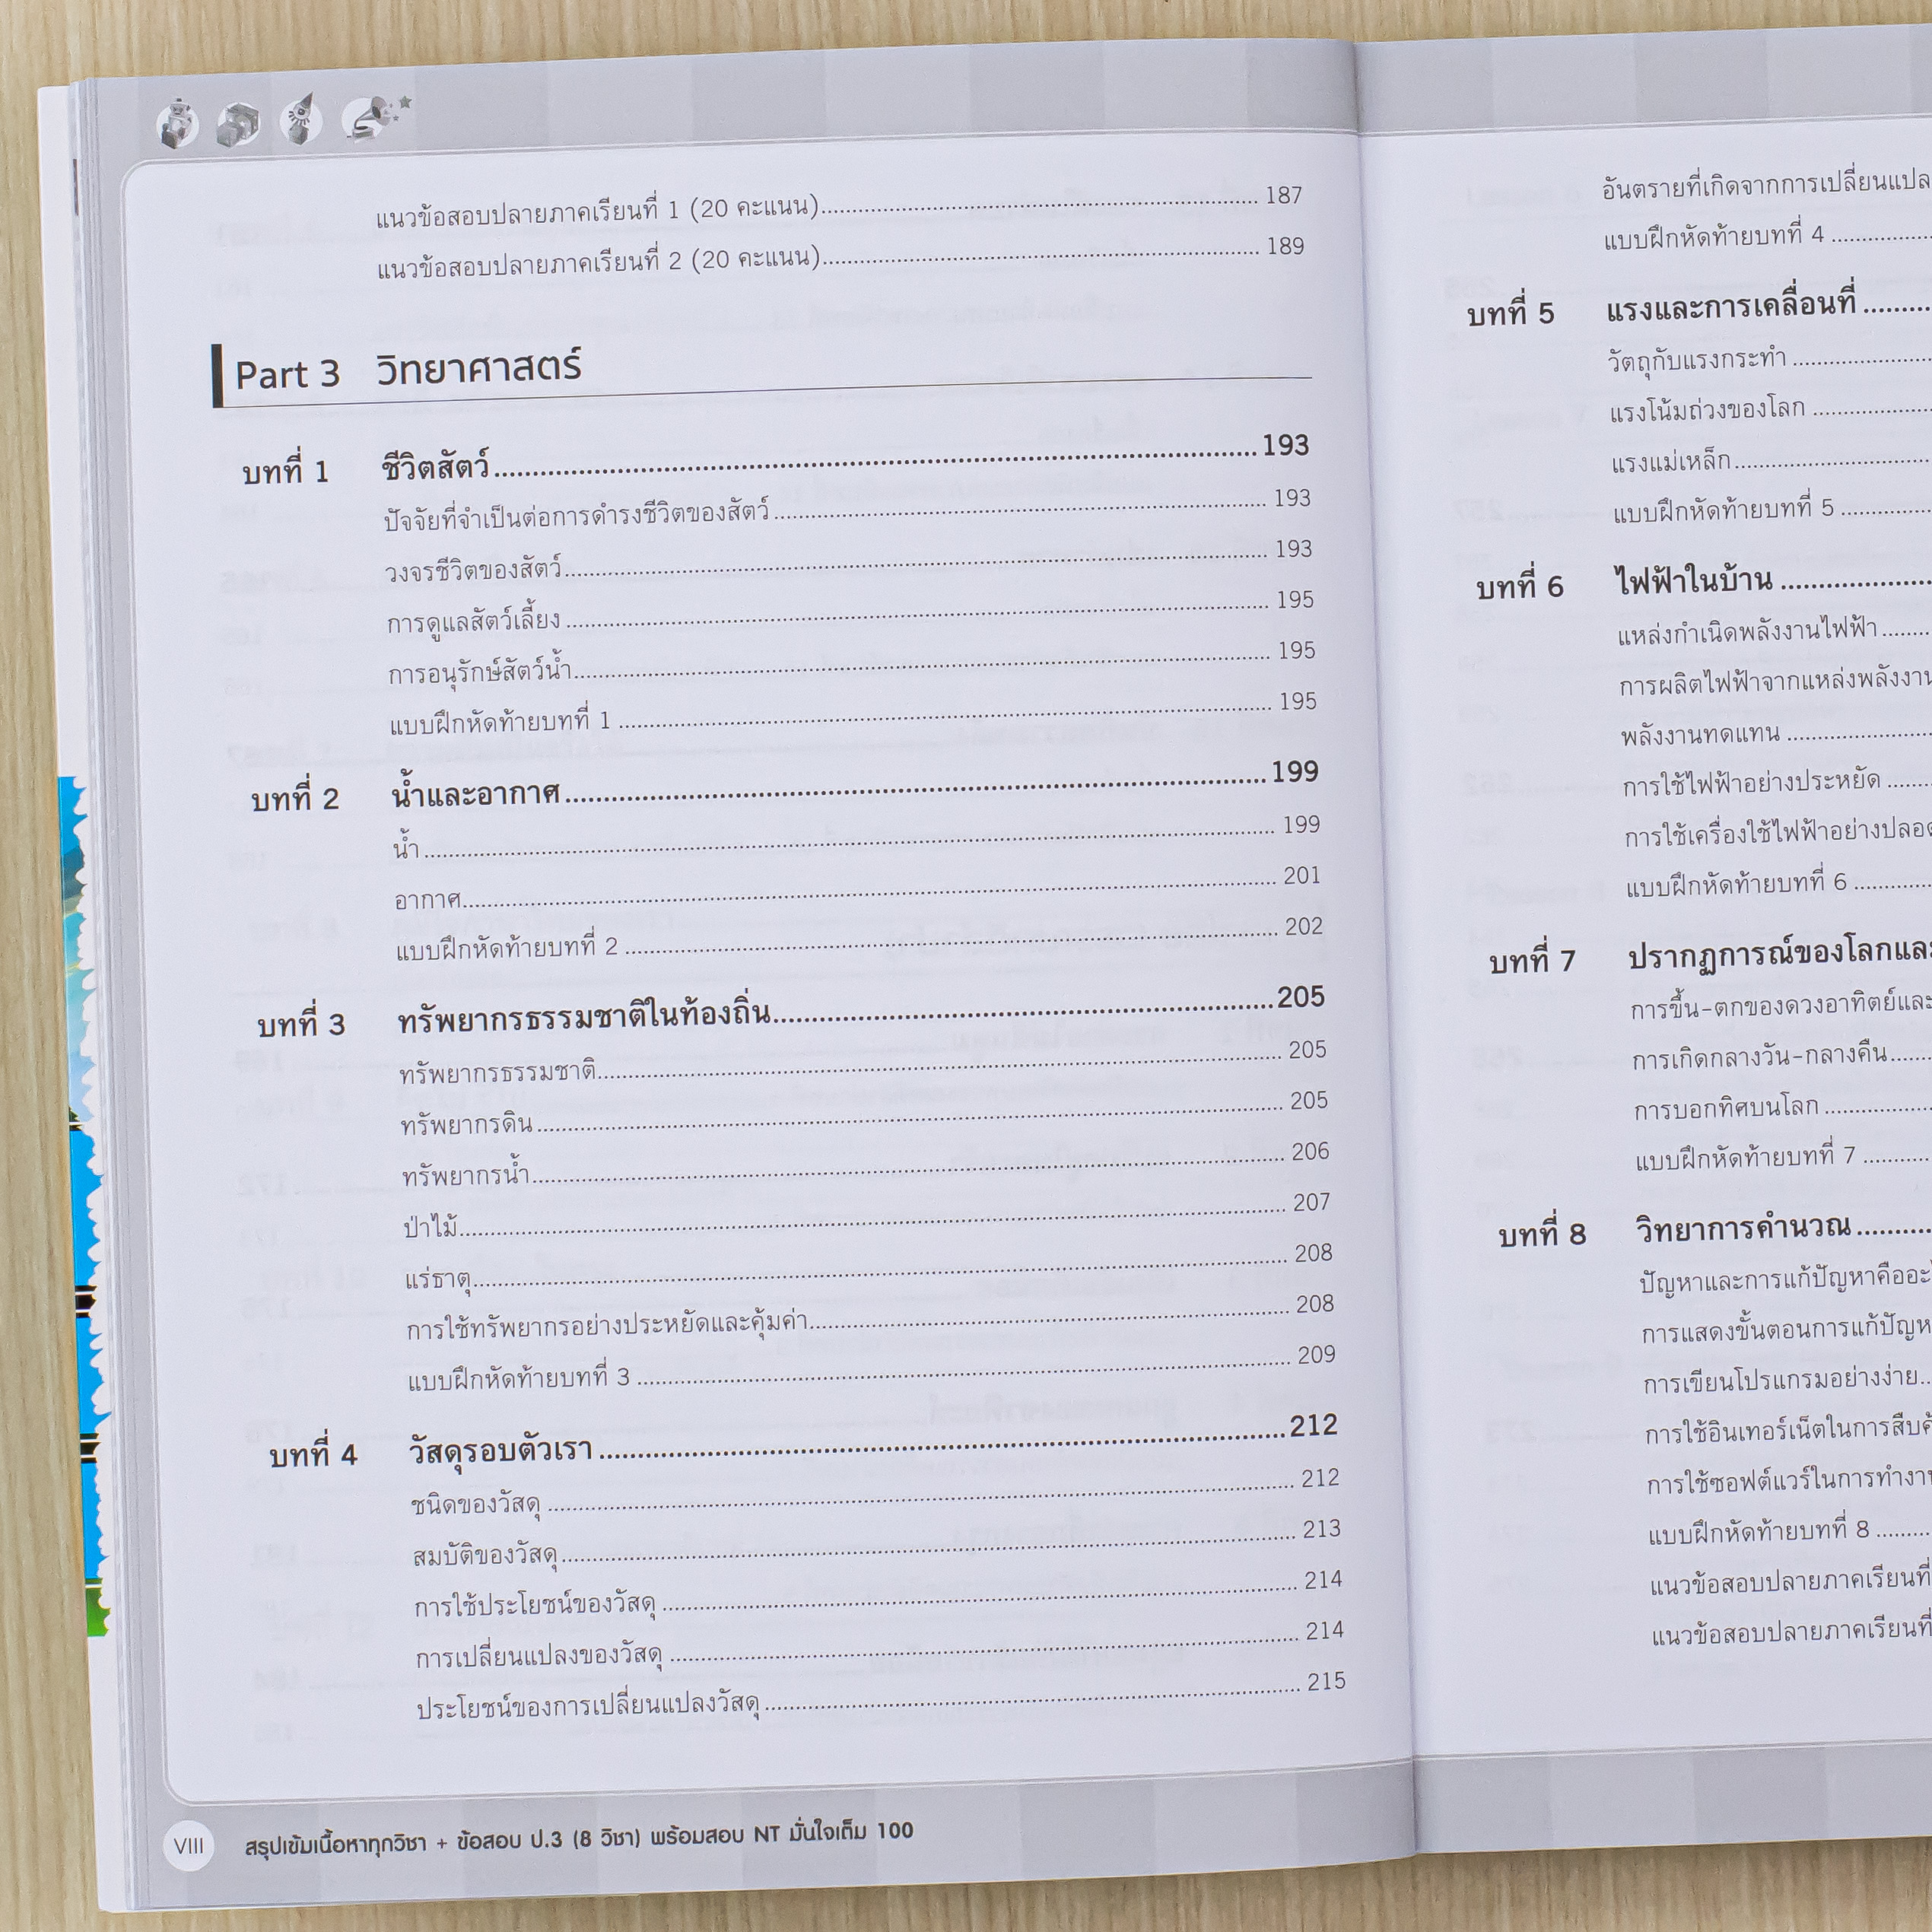 แนวข้อสอบปลายภาคเรียนที่ 1 (20 คะแนน)........ 187
แนวข้อสอบปลายภาคเรียนที่ 2 (20 คะแนน)........ 189
Part 3 วิทยาศาสตร์
บทที่ 1 ชีวิตสัตว์........ 193
ปัจจัยที่จำเป็นต่อการดำรงชีวิตของสัตว์........ 193
วงจรชีวิตของสัตว์........ 193
การดูแลสัตว์เลี้ยง........ 195
การอนุรักษ์สัตว์น้ำ........ 195
แบบฝึกหัดท้ายบทที่ 1........ 195
บทที่ 2 น้ำและอากาศ........ 199
น้ำ........ 199
อากาศ........ 201
แบบฝึกหัดท้ายบทที่ 2........ 202
บทที่ 3 ทรัพยากรธรรมชาติในท้องถิ่น........ 205
ทรัพยากรธรรมชาติ........ 205
ทรัพยากรดิน........ 205
ทรัพยากรน้ำ........ 206
ป่าไม้........ 207
แร่ธาตุ........ 208
การใช้ทรัพยากรอย่างประหยัดและคุ้มค่า........ 208
แบบฝึกหัดท้ายบทที่ 3........ 209
บทที่ 4 วัสดุรอบตัวเรา........ 212
ชนิดของวัสดุ........ 212
สมบัติของวัสดุ........ 213
การใช้ประโยชน์ของวัสดุ........ 214
การเปลี่ยนแปลงของวัสดุ........ 214
ประโยชน์ของการเปลี่ยนแปลงวัสดุ........ 215
VIII สรุปเข้มเนื้อหาทุกวิชา + ข้อสอบ ป.3 (8 วิชา) พร้อมสอบ NT มั่นใจเต็ม 100
อันตรายที่เกิดจากการเปลี่ยนแปล
แบบฝึกหัดท้ายบทที่ 4........
บทที่ 5 แรงและการเคลื่อนที่........
วัตถุกับแรงกระทำ........
แรงโน้มถ่วงของโลก........
แรงแม่เหล็ก........
แบบฝึกหัดท้ายบทที่ 5........
บทที่ 6 ไฟฟ้าในบ้าน........
แหล่งกำเนิดพลังงานไฟฟ้า........
การผลิตไฟฟ้าจากแหล่งพลังงาน
พลังงานทดแทน........
การใช้ไฟฟ้าอย่างประหยัด........
การใช้เครื่องใช้ไฟฟ้าอย่างปลอด
แบบฝึกหัดท้ายบทที่ 6........
บทที่ 7 ปรากฏการณ์ของโลกและ
การขึ้น-ตกของดวงอาทิตย์และ
การเกิดกลางวัน-กลางคืน........
การบอกทิศบนโลก........
แบบฝึกหัดท้ายบทที่ 7........
บทที่ 8 วิทยาการคำนวณ........
ปัญหาและการแก้ปัญหาคืออะ
การแสดงขั้นตอนการแก้ปัญห
การเขียนโปรแกรมอย่างง่าย........
การใช้อินเทอร์เน็ตในการสืบค้
การใช้ซอฟต์แวร์ในการทำงา
แบบฝึกหัดท้ายบทที่ 8........
แนวข้อสอบปลายภาคเรียนที่
แนวข้อสอบปลายภาคเรียนที่